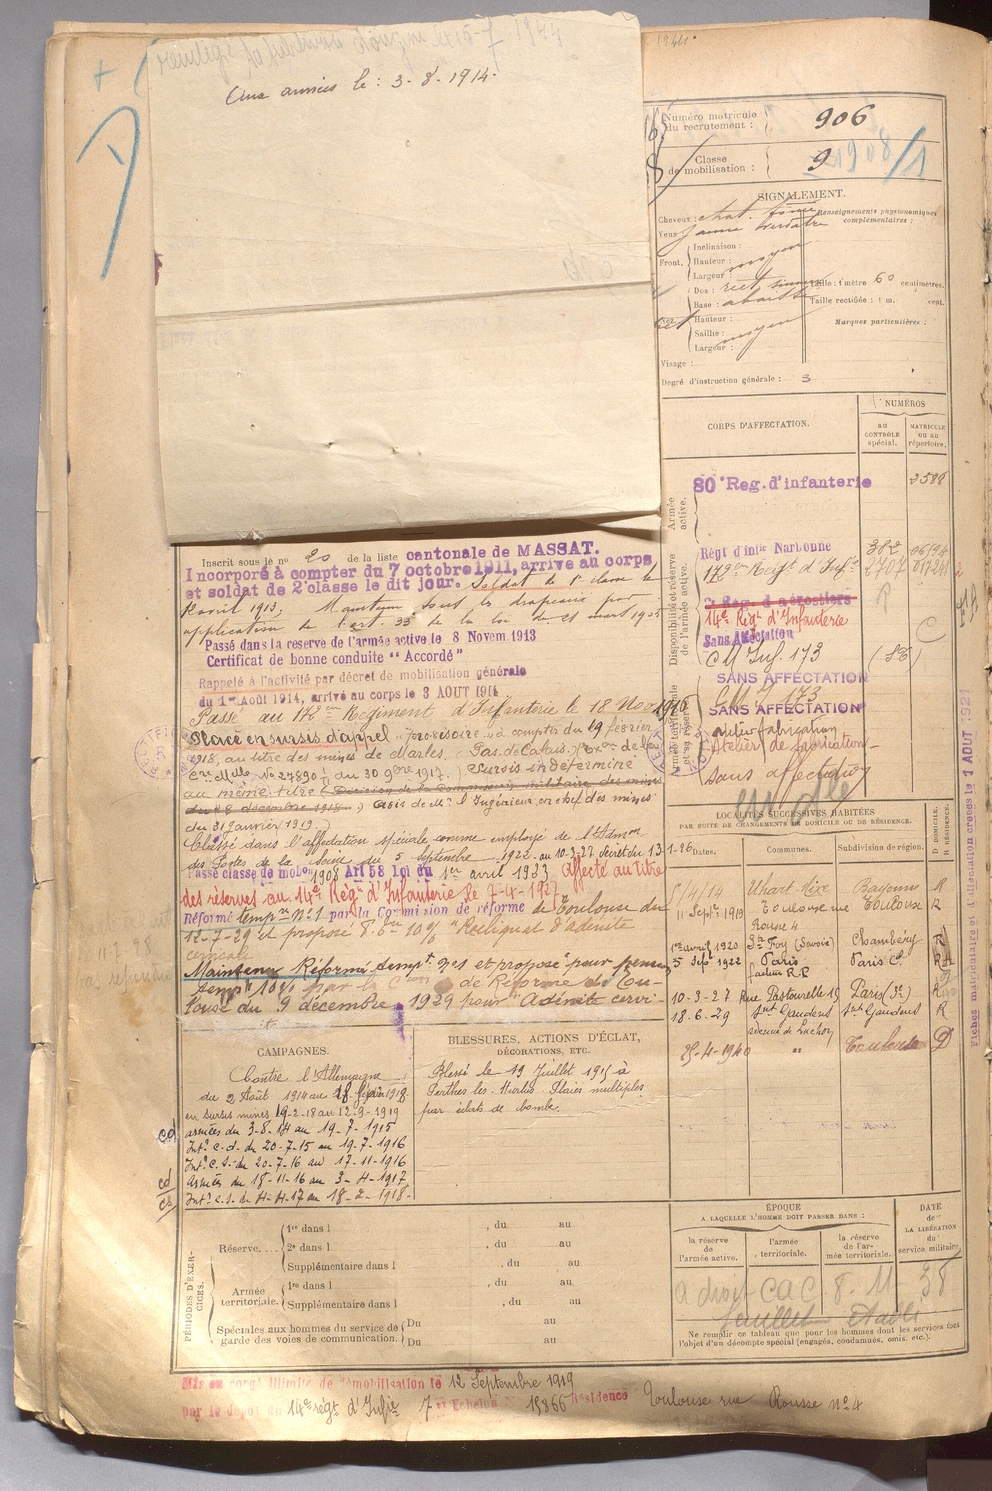 Cinq années le : 3-8-1914
1944
Numéro matricule du recrutement : 906
Classe de mobilisation : 9 1908/1
SIGNALEMENT.
Cheveux : chat. foncé
Yeux jaune verdâtre
Renseignements physionomiques complémentaires :
Front.
Inclinaison :
Hauteur : moyen
Largeur :
Nez.
Dos : rect. sinueux
Base : abaissé
Hauteur :
Saillie : moyen
Largeur :
Taille : 1 mètre 60 centimètres.
Taille rectifiée : 1 m. cent.
Marques particulières :
Visage :
Degré d'instruction générale : 3
CORPS D'AFFECTATION.
NUMÉROS
au CONTRÔLE spécial.
MATRICULE ou au répertoire.
Armée active.
80e Reg. d'infanterie 2588
Disponibilité et réserve de l'armée active.
Régt d'infie Narbonne 382 06194
142ème Regt d'Infie 2707 01724
2e Reg. d'aérostiers R
14e Régt d'Infanterie
Sans Affectation C
CM Inf. 173 (SX)
Armée territoriale et sa réserve
SANS AFFECTATION
CM I 173
SANS AFFECTATION
atelier fabrication
Atelier de fabrication
sans affectation
Inscrit sous le no 20 de la liste cantonale de MASSAT.
Incorporé à compter du 7 octobre 1911, arrive au corps
et soldat de 2e classe le dit jour. Soldat de 1e classe le
avril 1913; Maintenu sous les drapeaux par
application de l'art. 33 de la loi du 21 mars 1905
Passé dans la reserve de l'armée active le 8 Novem 1913
Certificat de bonne conduite "Accordé"
Rappelé à l'activité par décret de mobilisation générale
du 1er Août 1914, arrivé au corps le 3 AOUT 1914
Passé au 142ème Régiment d'Infanterie le 18 Nov 1916
Placé en sursis d'appel provisoire à compter du 19 février
1918, au titre des mines de Marles. (Pas-de-Calais)
No 27890 du 30 9bre 1917.) Sursis indéterminé
au même titre (Décision de la Commission militaire des mines
du 28 décembre 1918.) Avis de Mr l'Ingénieur en chef des mines
du 31 janvier 1919.)
Classé dans l'affectation spéciale comme employé de l'Admon
des Postes de la Seine du 5 septembre 1922 au 10-3-27
Passé classe de mobon 1908 Art 58 Loi du 1er avril 1923 Affecté au titre
des réserves au 14e Régt d'Infanterie le 7-4-1927
Réformé tempre no 1 par la Commission de réforme de Toulouse du
12-7-29 et proposé 10 % Reliquat d'adénite
cervicale
Maintenu Réformé tempre no 1 et proposé pour pension
tempre 10% par la Con de Réforme de Tou-
louse du 9 décembre 1929 pour Adénite cervi-
LOCALITÉS SUCCESSIVES HABITÉES
PAR SUITE DE CHANGEMENTS DE DOMICILE OU DE RÉSIDENCE.
Dates. Communes. Subdivision de région. D DOMICILE. R RÉSIDENCE.
5/4/14 Uhart-Mixe Bayonne R
11 Septre 1919 Toulouse rue Rousse 4 Toulouse R
1er avril 1920 Ste Foy (Savoie) Chambéry R
5 Sept 1922 Paris facteur R.P. Paris R
10-3-27 Rue Pastourelle 19 Paris (3e) R
18-6-29 Snt Gaudens avenue de Luchon Snt Gaudens R
25-4-1940 " Toulouse D
Fiches matriculaire et d'affectation créées le 1 AOUT 1921
CAMPAGNES.
Contre l'Allemagne
du 2 Août 1914 au 18 février 1918
en sursis mines 19-2-18 au 12-9-1919
armées du 3-8-14 au 19-7-1915
Intr c.d. du 20-7-15 au 19-7-1916
Intr c.s. du 20-7-16 au 17-11-1916
Armées du 18-11-16 au 3-4-1917
Intr c.s. du 4-4-17 au 18-2-1918
BLESSURES, ACTIONS D'ÉCLAT, DÉCORATIONS, ETC.
Blessé le 19 Juillet 1915 à
Perthes-les-Hurlus Plaies multiples
par éclats de bombe.
PÉRIODES D'EXERCICES.
Réserve....
1re dans l , du au
2e dans l , du au
Supplémentaire dans l , du au
Armée territoriale.
1re dans l , du au
Supplémentaire dans l , du au
Spéciales aux hommes du service de garde des voies de communication.
Du au
Du au
ÉPOQUE
A LAQUELLE L'HOMME DOIT PASSER DANS :
la réserve de l'armée active.
l'armée territoriale.
la réserve de l'armée territoriale.
DATE de LA LIBÉRATION du service militaire.
a droit CAC 8-11-38
feuillet établi
Ne remplir ce tableau que pour les hommes dont les services font
l'objet d'un décompte spécial (engagés, condamnés, omis, etc.).
Mis en congé illimité de démobilisation le 12 Septembre 1919
par le dépôt du 14e régt d'Infie 7e Echelon 15866 Résidence Toulouse rue Rousse no 4